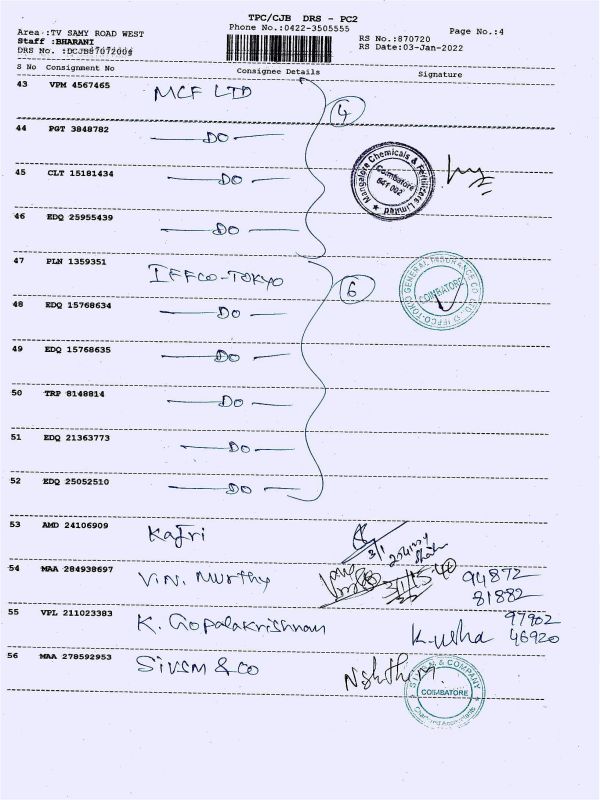 TPC/CJB DRS - PC2
Phone No.:0422-3505555
Page No.:4
Area :TV SAMY ROAD WEST
Staff :BHARANI
DRS No. :DCJB87072004
RS No.:870720
RS Date:03-Jan-2022
S No Consignment No Consignee Details Signature
43 VPM 4567465 MCF LTD
4
44 PGT 3848782 DO
45 CLT 15181434 DO
Mangalore Chemicals & Fertilizers Limited
Coimbatore
641 002
46 EDQ 25955439 DO
47 PLN 1359351 IFFCO-TOKYO
6
IFFCO-TOKYO GENERAL INSURANCE CO. LTD.
COIMBATORE
48 EDQ 15768634 DO
49 EDQ 15768635 DO
50 TRP 8148814 DO
51 EDQ 21363773 DO
52 EDQ 25052510 DO
53 AMD 24106909 Kajri
3/1
54 MAA 284938697 V.N. Murthy
94872
81882
55 VPL 211023383 K. Gopalakrishnan K.usha
97902
46920
56 MAA 278592953 SIVSM & CO
SIVSM & COMPANY
COIMBATORE
Chartered Accountants